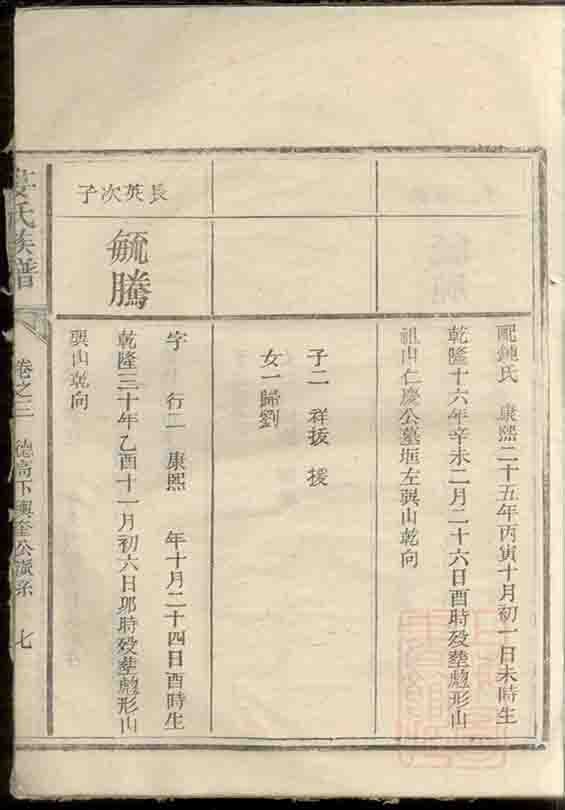 配鍾氏 康熙二十五年丙寅十月初一日未時生
乾隆十六年辛未二月二十六日酉時殁塟魁形山
祖山仁慶公墓堐左巽山乾向
子二 祥拔 援
女一歸劉
長英次子
毓騰
字 行二 康熙 年十月二十四日酉時生
乾隆三十年乙酉十一月初六日卯時殁塟魁形山
巽山乾向
姜氏族譜
卷之三 德高下興奎公派系 七